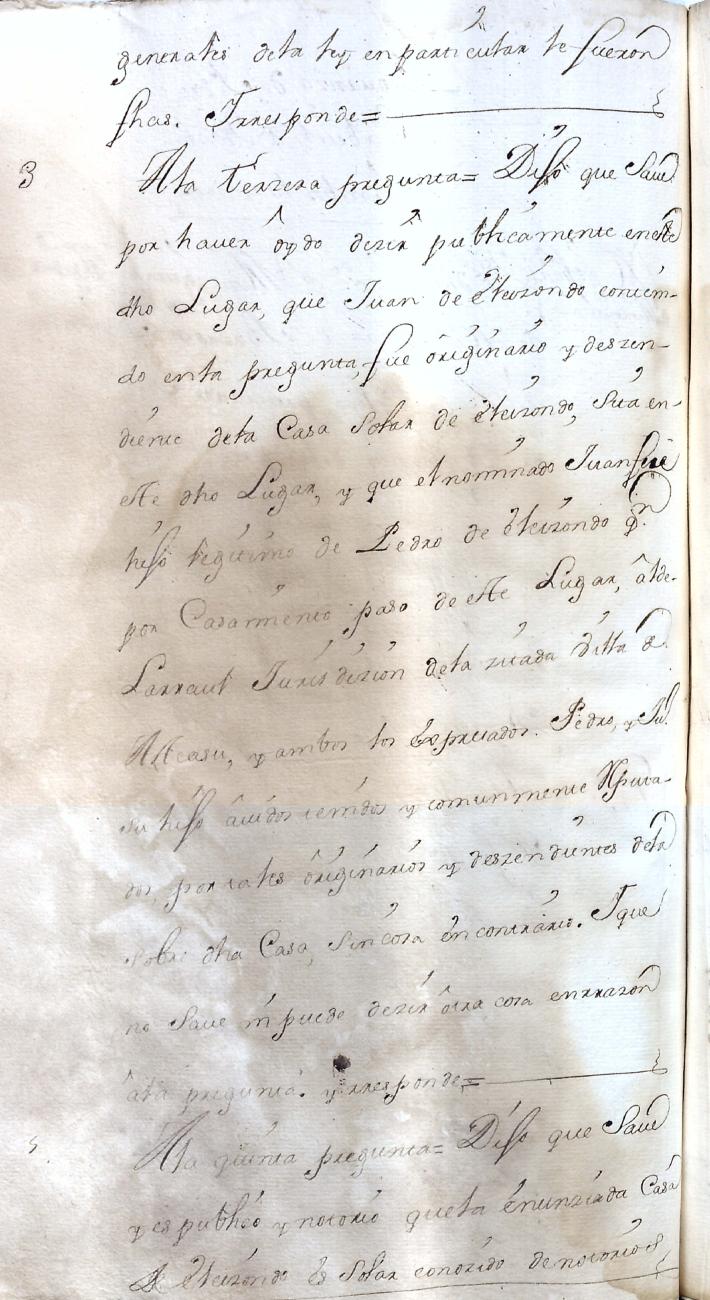 generales dela ley en particular le fueron
fhas. Irresponde=
3 Ala terzera pregunta= Dijo que Save
por haver oydo dezir publicamente en este
dho Lugar, que Juan de Eleizondo conteni-
do enla pregunta, fue originario y deszen-
diente dela Casa Solar de Eleizondo, Sita en-
este dho Lugar, y que el nominado Juan fue
hijo legitimo de Pedro de Eleizondo q.n
por Casamiento paso de este Lugar, al de-
Larraul Jurisdizion dela zitada Villa de
Asteasu, y ambos los Expresados. Pedro, y Ju.
su hijo avidos tenidos y comunmente Reputa-
dos, por tales originarios y deszendientes dela
sobre dha Casa, sin cosa en contrario. Y que
no Save ni puede dezir otra cosa enrrazon
ala pregunta. yrresponde=
5 Ala quinta pregunta= Dijo que Save
y es publico y notorio que la enunziada Casa
de Eleizondo es Solar conozido de notorios